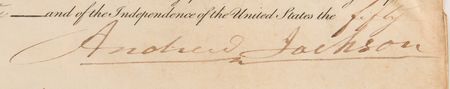 and of the Independence of the United States the fifty
Andrew Jackson